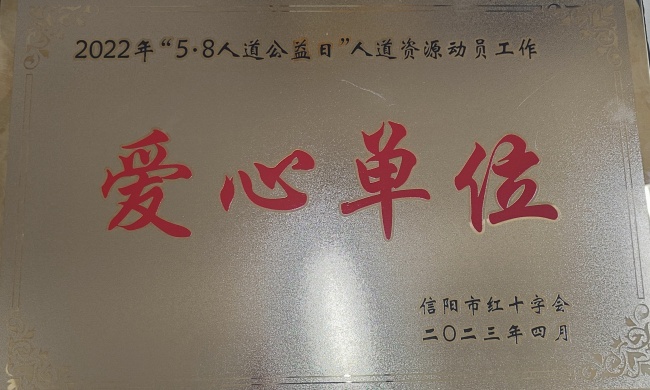 2022年“5·8人道公益日”人道资源动员工作
爱心单位
信阳市红十字会
二〇二三年四月